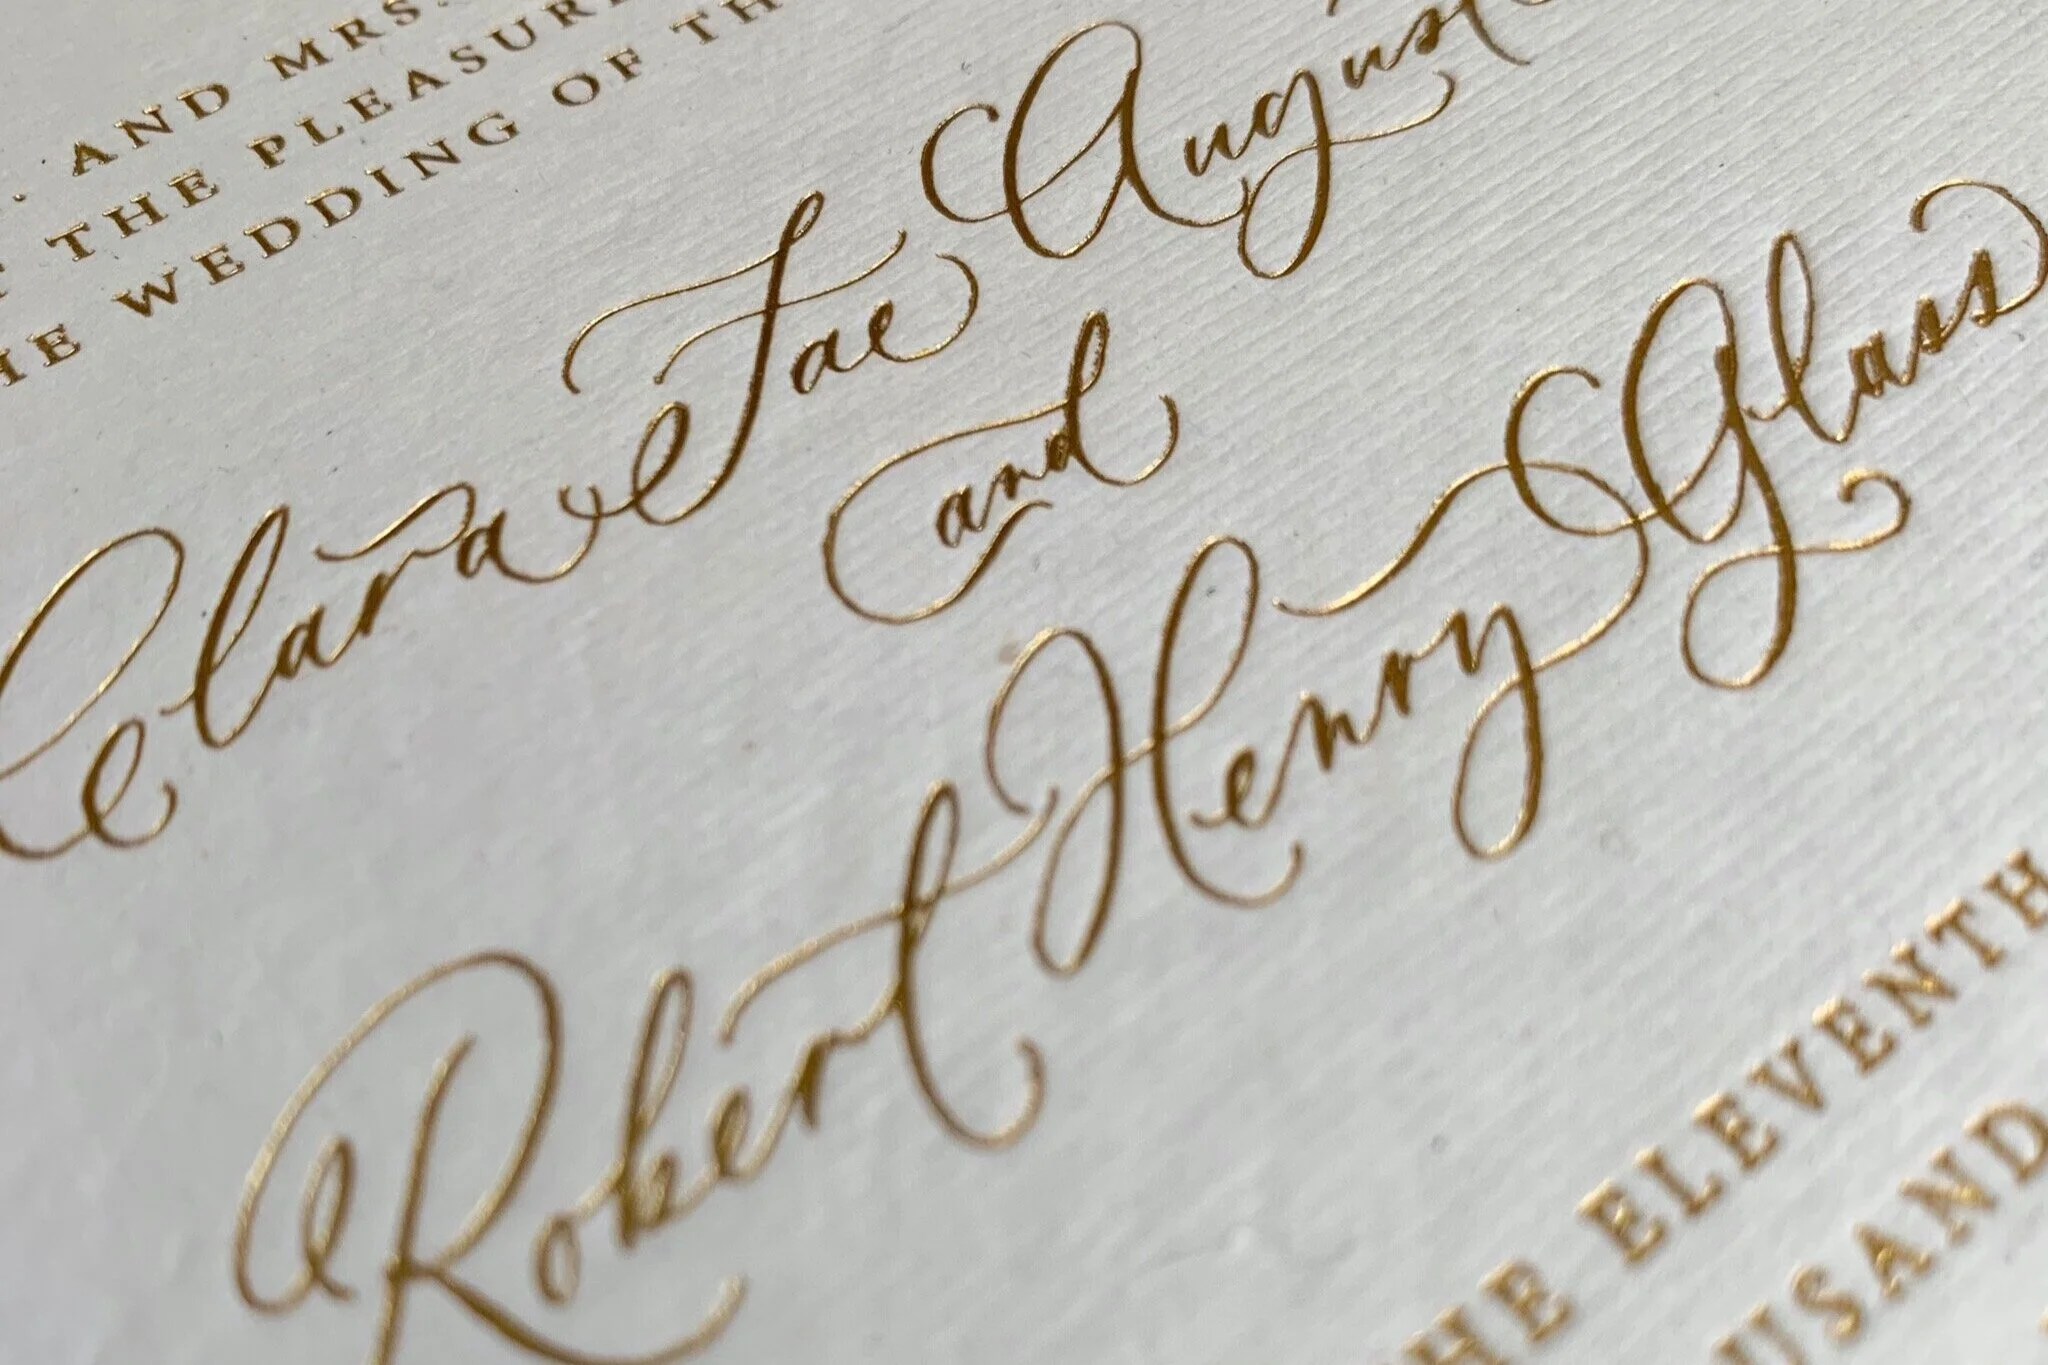 AND MRS.
THE PLEASURE
WEDDING OF TH
Clara Fae August
and
Robert Henry Glass
HE ELEVENTH
USAND